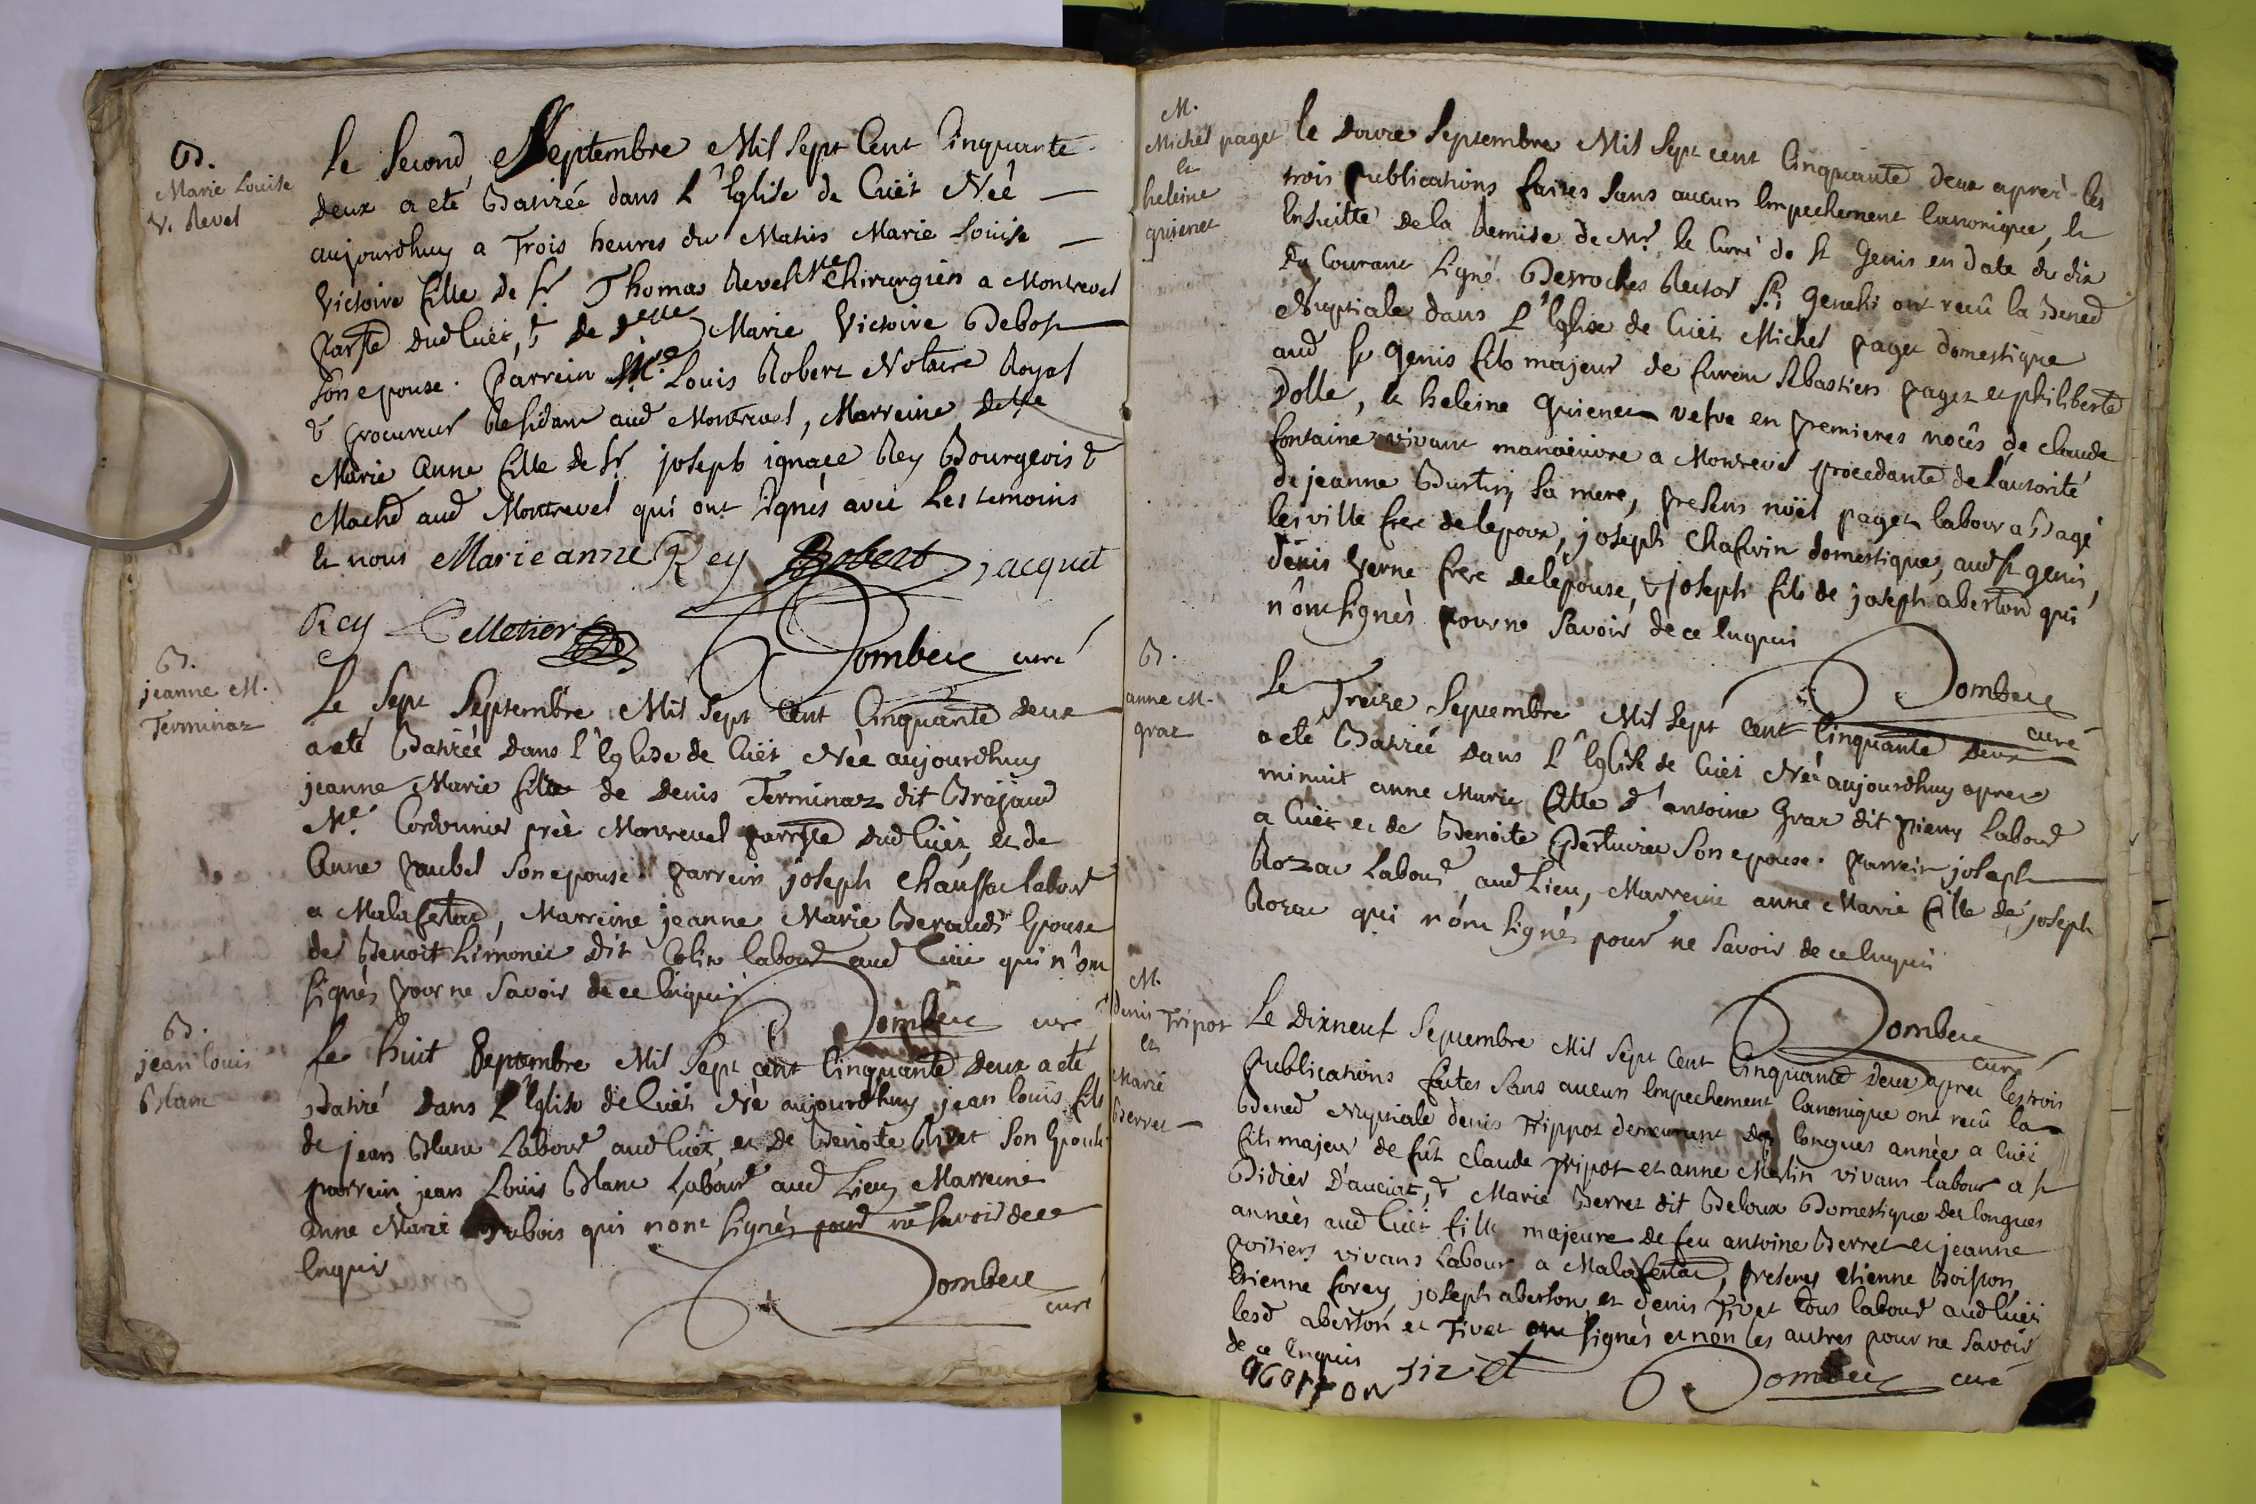 B.
Marie Louise
V. Revel
Le Second Septembre Mil Sept Cent Cinquante
deux a eté Batisée dans L'Eglise de Cuët Née
aujourdhuy a Trois heures du Matin Marie Louise
Victoire fille de Sr. Thomas Revel Me Chirurgien a Montrevel
parsse dud Cuët, & de delle Marie Victoire Debost
son epouse. parrein Me. Louis Robert Notaire Royal
& procureur Residant aud Montrevel, Marreine delle
Marie Anne fille de Sr. joseph ignace Rey Bourgeois &
Machd aud Montrevel qui ont signés avec les temoins
et nous Marie anne Rey Robert jacquet
Rey Pelletier Dombey curé
B.
jeanne M.
Terminaz
Le Sept Septembre Mil Sept Cent Cinquante deux
a eté Batisée dans l'Eglise de Cuët Née aujourdhuy
jeanne Marie fille de Denis Terminaz dit Brajaud
Me. Cordonnier près Montrevel parsse dud Cuët et de
Anne paubel son epouse. parrein joseph Chaussac labour
a Malafretaz, Marreine jeanne Marie Beraudi Epouse
de Benoit Limonier dit Colin labour aud Cuët qui n'ont
signés pour ne savoir de ce Enquis
Dombey curé
B.
jean louis
Blanc
Le huit Septembre Mil Sept cent Cinquante deux a eté
Batisé dans L'Eglise de Cuët Né aujourdhuy jean louis fils
de jean Blanc Labour aud Cuët, et de Benoite Rivet son Epouse
parrein jean Louis Blanc Labour aud Lieu Marreine
anne Marie Dubois qui n'ont signés pour ne savoir de ce
Enquis
Dombey
curé
M.
Michel paget
et
heleine
quienet
le douze Septembre Mil Sept cent Cinquante deux après les
trois publications faites sans aucun Empechement Canonique, et
Ensuitte de la Remise de Mr. le Curé de St Genis en date du dix
du Courant signé Desroches Rector Sti genesii ont reçû la Bened
Nuptiale dans L'Eglise de Cuët Michel paget domestique
aud St Genis fils majeur de furent Sebastien paget et philiberte
Dolle, et heleine quienet vefve en premieres noces de claude
fontaine vivant manoeuvre a Montrevel procedante de l'autorité
de jeanne Burtin sa mere, presens noël paget labour a Bagé
la ville frere de lepoux, joseph Chafvin domestique, aud St genis,
denis Verne frere de lepouse, & joseph fils de joseph aberton qui
n'ont signés pour ne savoir de ce Enquis
Dombey
curé
B.
anne M.
graz
Le Treize Septembre Mil Sept cent Cinquante deux
a eté Batisée dans L'Eglise de Cuët Née aujourdhuy apres
minuit anne Marie fille d'antoine Graz dit pieny labour
a Cuët et de Benoite Pertuizet son epouse. parrein joseph
Rozac Labour aud Lieu, Marreine anne Marie fille de joseph
Rozac qui n'ont signés pour ne savoir de ce Enquis
Dombey
curé
M.
denis Tripot
et
Marie
Berret
Le Dixneuf Septembre Mil Sept Cent Cinquante deux après les trois
publications faites sans aucun Empechement Canonique ont reçû la
Bened Nuptiale denis Trippot demeurant des longues année a Cuët
fils majeur de fût Claude Tripot et anne Merlin vivans labour a St
Didier d'auciat, & Marie Berret dit Beloux Domestique des longues
années aud Cuët fille majeure de feu antoine Berret et jeanne
poitiers vivans Labour a Malafretaz, presens etienne Boisson
Etienne forey joseph aberton et denis Tivet tous labour aud Cuët
lesd aberton et Tivet ont signés et non les autres pour ne savoir
de ce Enquis
aborton Tivet Dombey curé